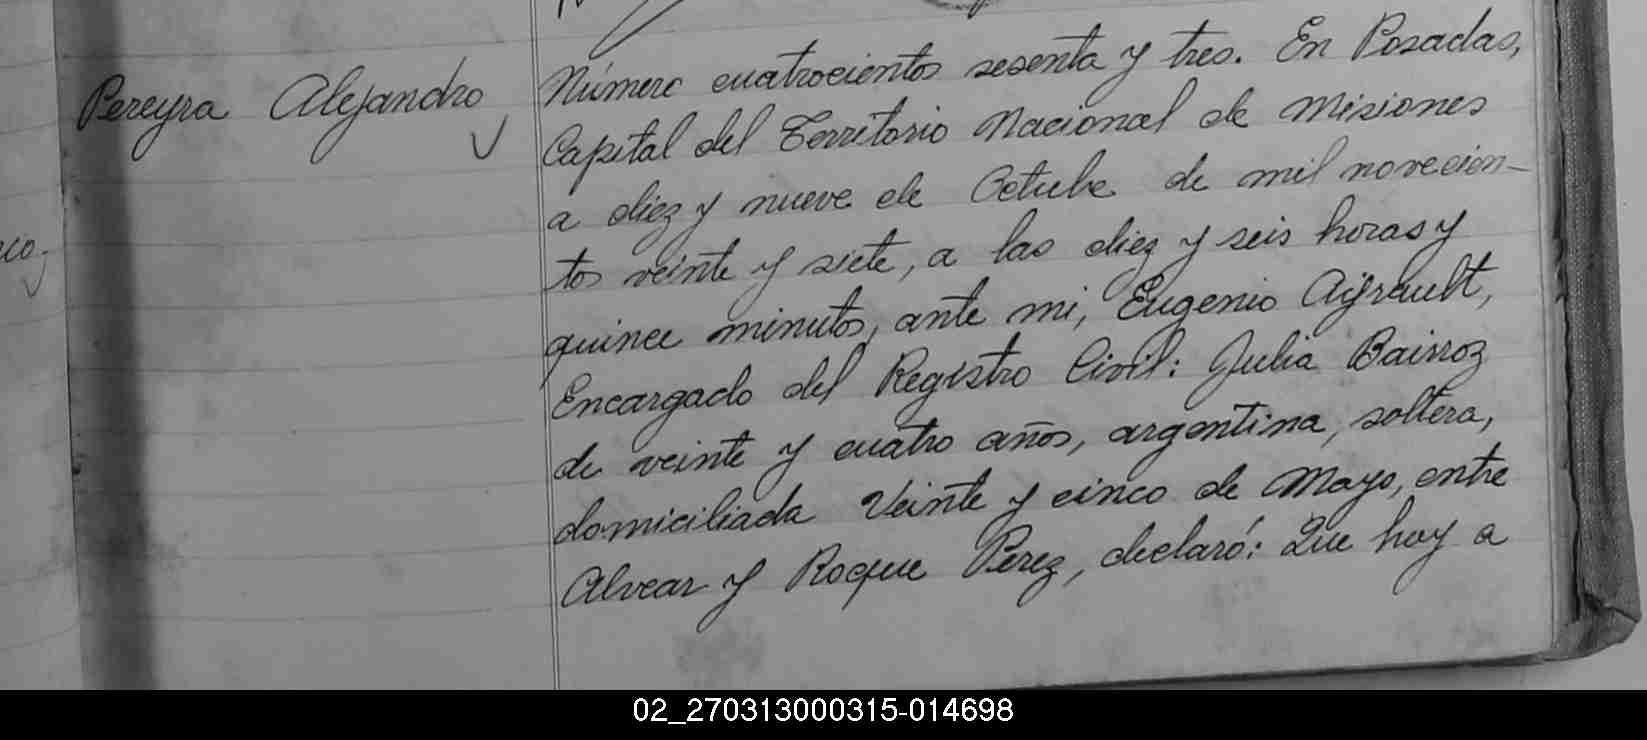 Pereyra Alejandro
Número cuatrocientos sesenta y tres. En Posadas,
Capital del Territorio Nacional de Misiones
a diez y nueve de Octube de mil novecien-
tos veinte y siete, a las diez y seis horas y
quince minutos, ante mi, Eugenio Ayrault,
Encargado del Registro Civil: Julia Bairroz
de veinte y cuatro años, argentina, soltera,
domiciliada Veinte y cinco de Mayo, entre
Alvear y Roque Perez, declaró: Que hoy a
02_270313000315-014698